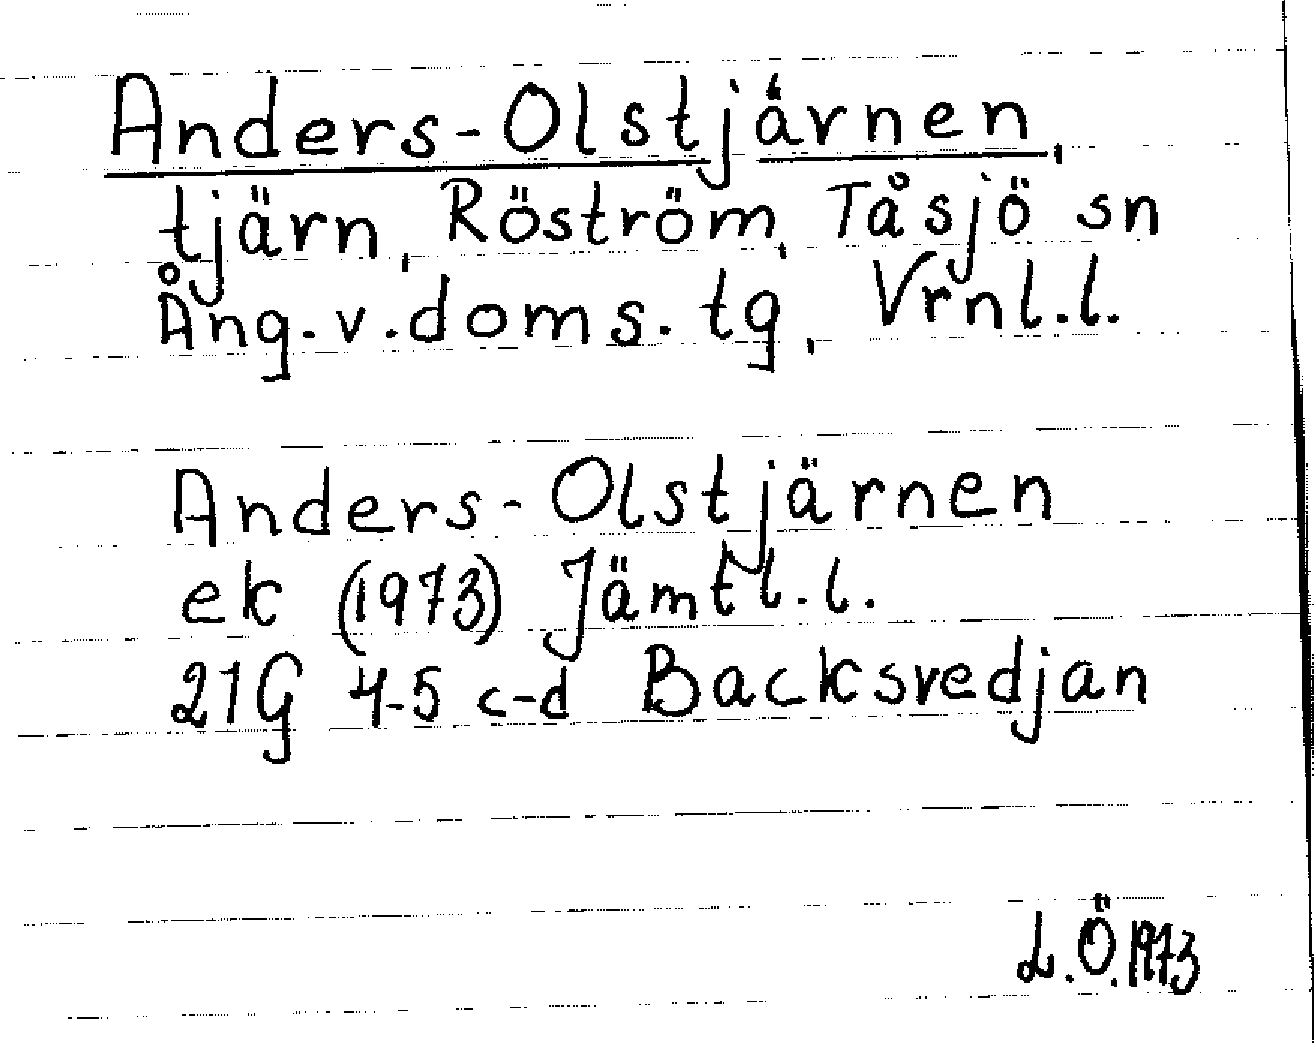 Anders-Olstjärnen,
tjärn, Röström, Tåsjö sn
Ång.v.doms.tg, Vrnl.l.
Anders-Olstjärnen
ek (1973) Jämtl.l.
21G 4-5 c-d Backsvedjan
L.Ö.1973